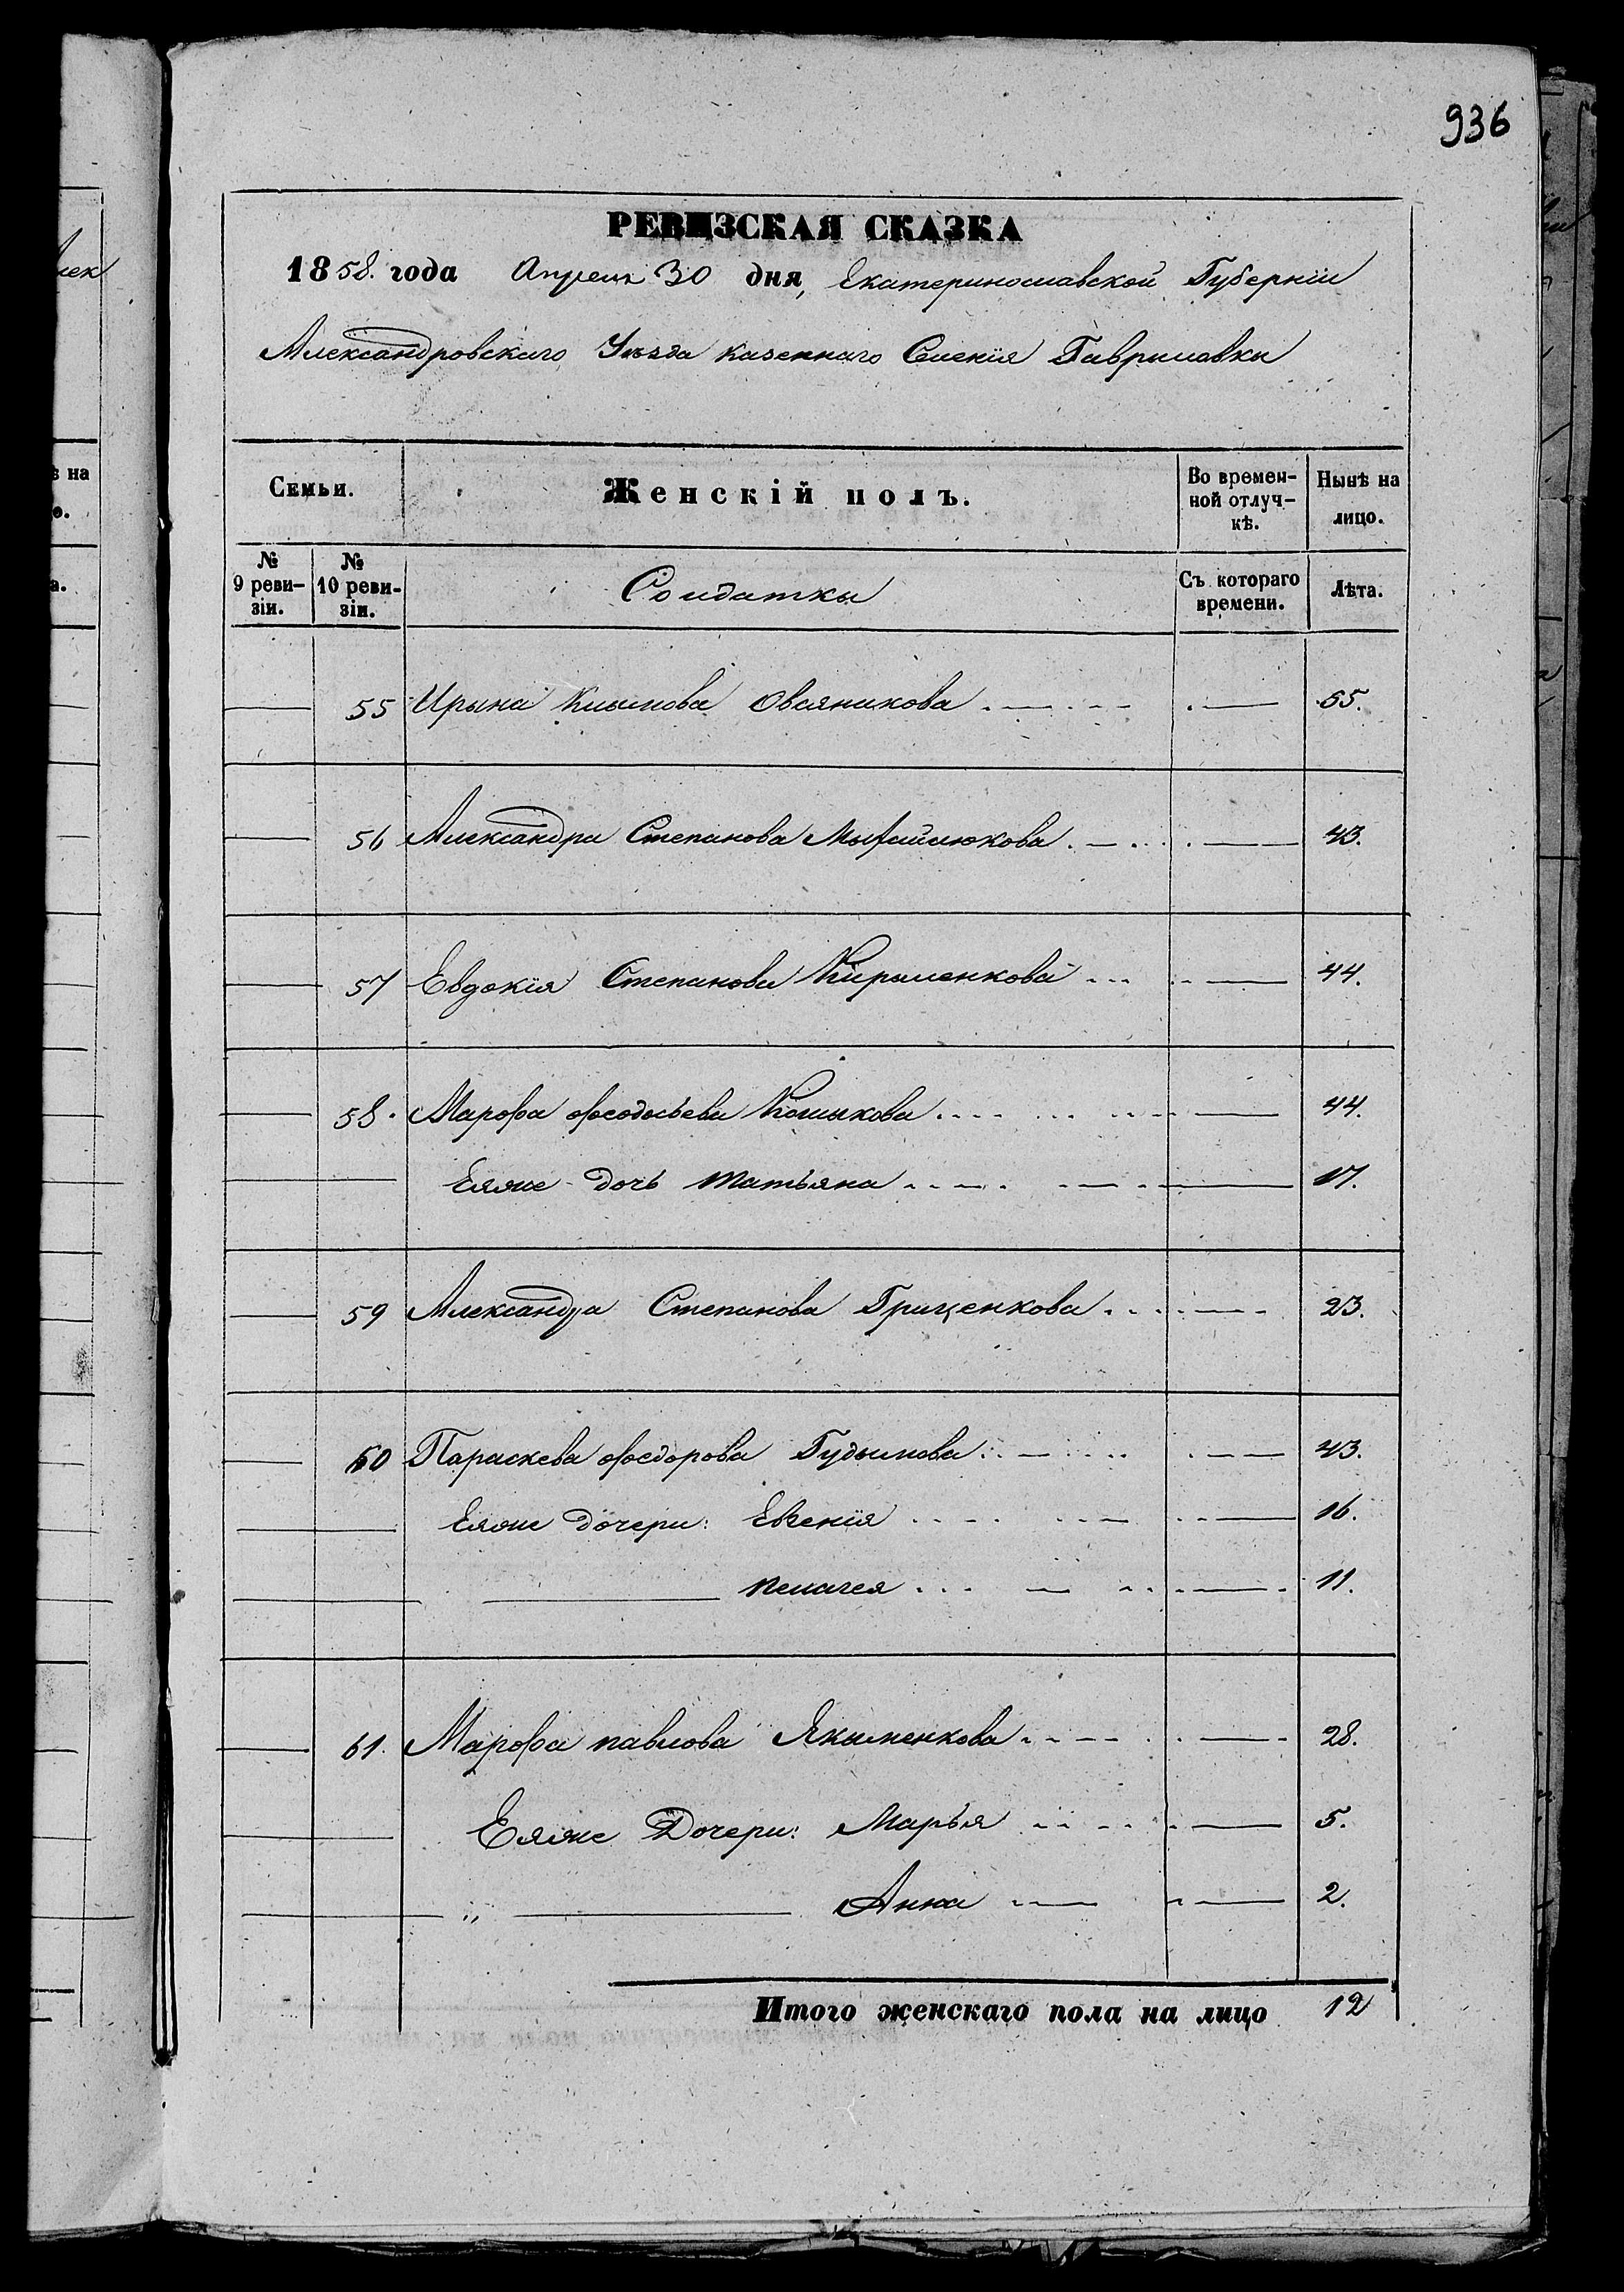 936
РЕВИЗСКАЯ СКАЗКА
1858. года Апреля 30 дня, Екатеринославской Губерніи
Александровскаго Уѣзда казеннаго Селенія Гаврыловки
Семьи.
Женскій полъ.
Во времен-
ной отлуч-
кѣ.
Нынѣ на
лицо.
№
9 реви-
зіи.
№
10 реви-
зіи.
Солдатки
Съ котораго
времени.
Лѣта.
55 Ирына Клымова Овсяникова 55.
56 Александра Степанова 43.
57 Евдокія Степанова Кырыленкова 44.
58. Марѳа Ѳеодосьева 44.
Еяже дочь Татьяна 17.
59 Александра Степанова Гриценкова 23.
60 Параскева Ѳедорова Гудымова 43.
Еяже дочери: Евгенія 16.
Пелагея 11.
61. Марѳа Павлова Якыменкова 28.
Еяже Дочери: Марья 5.
„ Анна 2.
Итого женскаго пола на лицо 12
лек
ѣ на
о.
а.